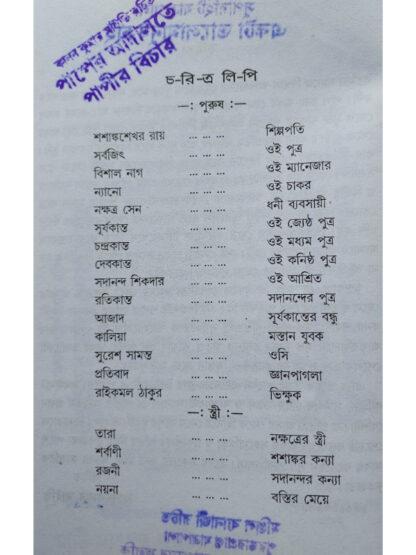 পাপের আদালতে
পাপীর বিচার
চ-রি-ত্র লি-পি
—: পুরুষ :—
শশাঙ্কশেখর রায় ... ... ... শিল্পপতি
সর্বজিৎ ... ... ... ওই পুত্র
বিশাল নাগ ... ... ... ওই ম্যানেজার
ন্যানো ... ... ... ওই চাকর
নক্ষত্র সেন ... ... ... ধনী ব্যবসায়ী
সূর্যকান্ত ... ... ... ওই জ্যেষ্ঠ পুত্র
চন্দ্রকান্ত ... ... ... ওই মধ্যম পুত্র
দেবকান্ত ... ... ... ওই কনিষ্ঠ পুত্র
সদানন্দ শিকদার ... ... ... ওই আশ্রিত
রতিকান্ত ... ... ... সদানন্দের পুত্র
আজাদ ... ... ... সূর্যকান্তের বন্ধু
কালিয়া ... ... ... মস্তান যুবক
সুরেশ সামন্ত ... ... ... ওসি
প্রতিবাদ ... ... ... জ্ঞানপাগলা
রাইকমল ঠাকুর ... ... ... ভিক্ষুক
—: স্ত্রী :—
তারা ... ... ... নক্ষত্রের স্ত্রী
শর্বাণী ... ... ... শশাঙ্কর কন্যা
রজনী ... ... ... সদানন্দর কন্যা
নয়না ... ... ... বস্তির মেয়ে